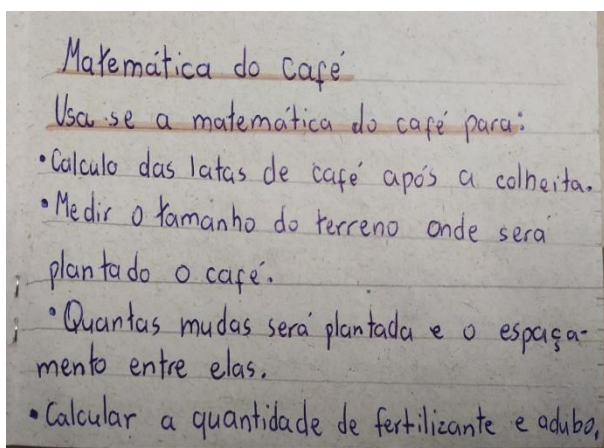 Matemática do café
Usa-se a matemática do café para:
• Calculo das latas de café após a colheita.
• Medir o tamanho do terreno onde será
plantado o café.
• Quantas mudas será plantada e o espaça-
mento entre elas.
• Calcular a quantidade de fertilizante e adubo.